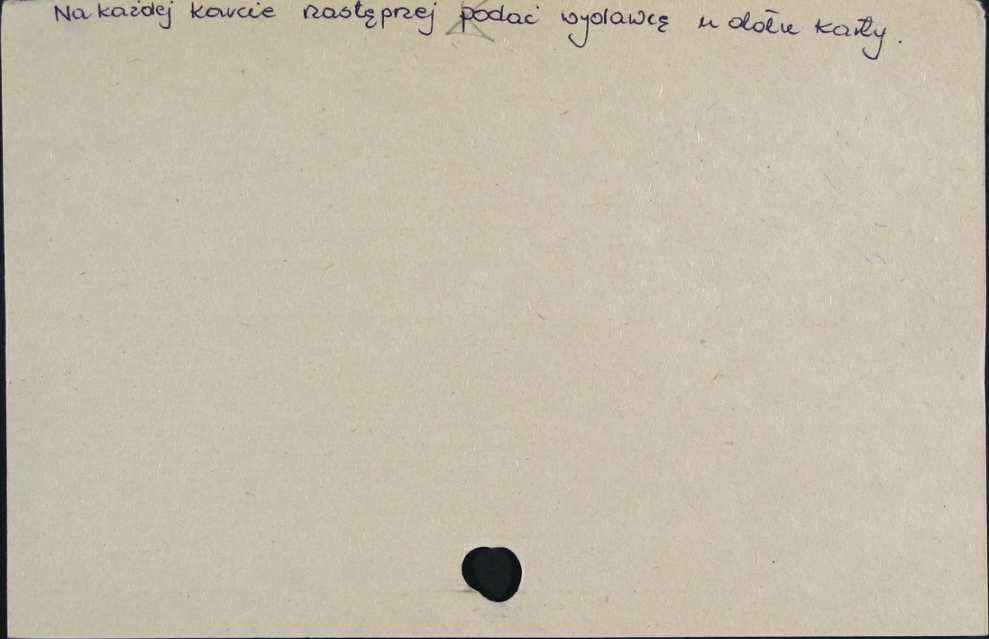 Na każdej karcie następnej podać wydawcę u dołu karty.